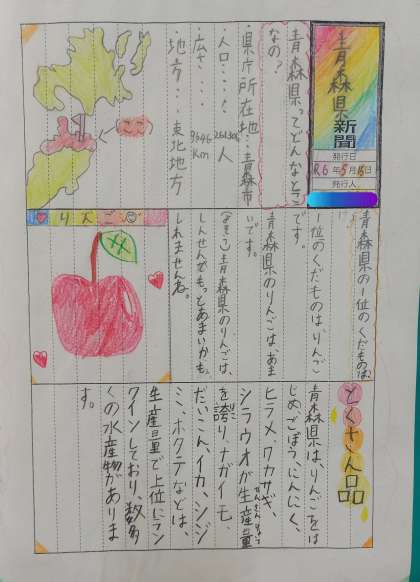 青森県
新聞
発行日
R6年5月8日
発行人
青森県ってどんなところ
なの?
・県庁所在地…青森市
・人口……人
・広さ…9646km
・地方…東北地方
ここ
青森県の1位のくだものは?
1位のくだものは、りんご
です。
青森県のりんごは、あま
いです。
青森県のりんごは、
しんせんでもっとあまいかも
しれませんね。
りんご
とくさん品
青森県は、りんごをは
じめ、ごぼう、にんにく、
ヒラメ、ワカサギ、
シラウオが生産量
を誇り、ナガイモ、
だいこん、イカ、シジ
ミ、ホタテなどは、
生産量で上位にラン
クインしており、数多
くの水産物がありま
す。